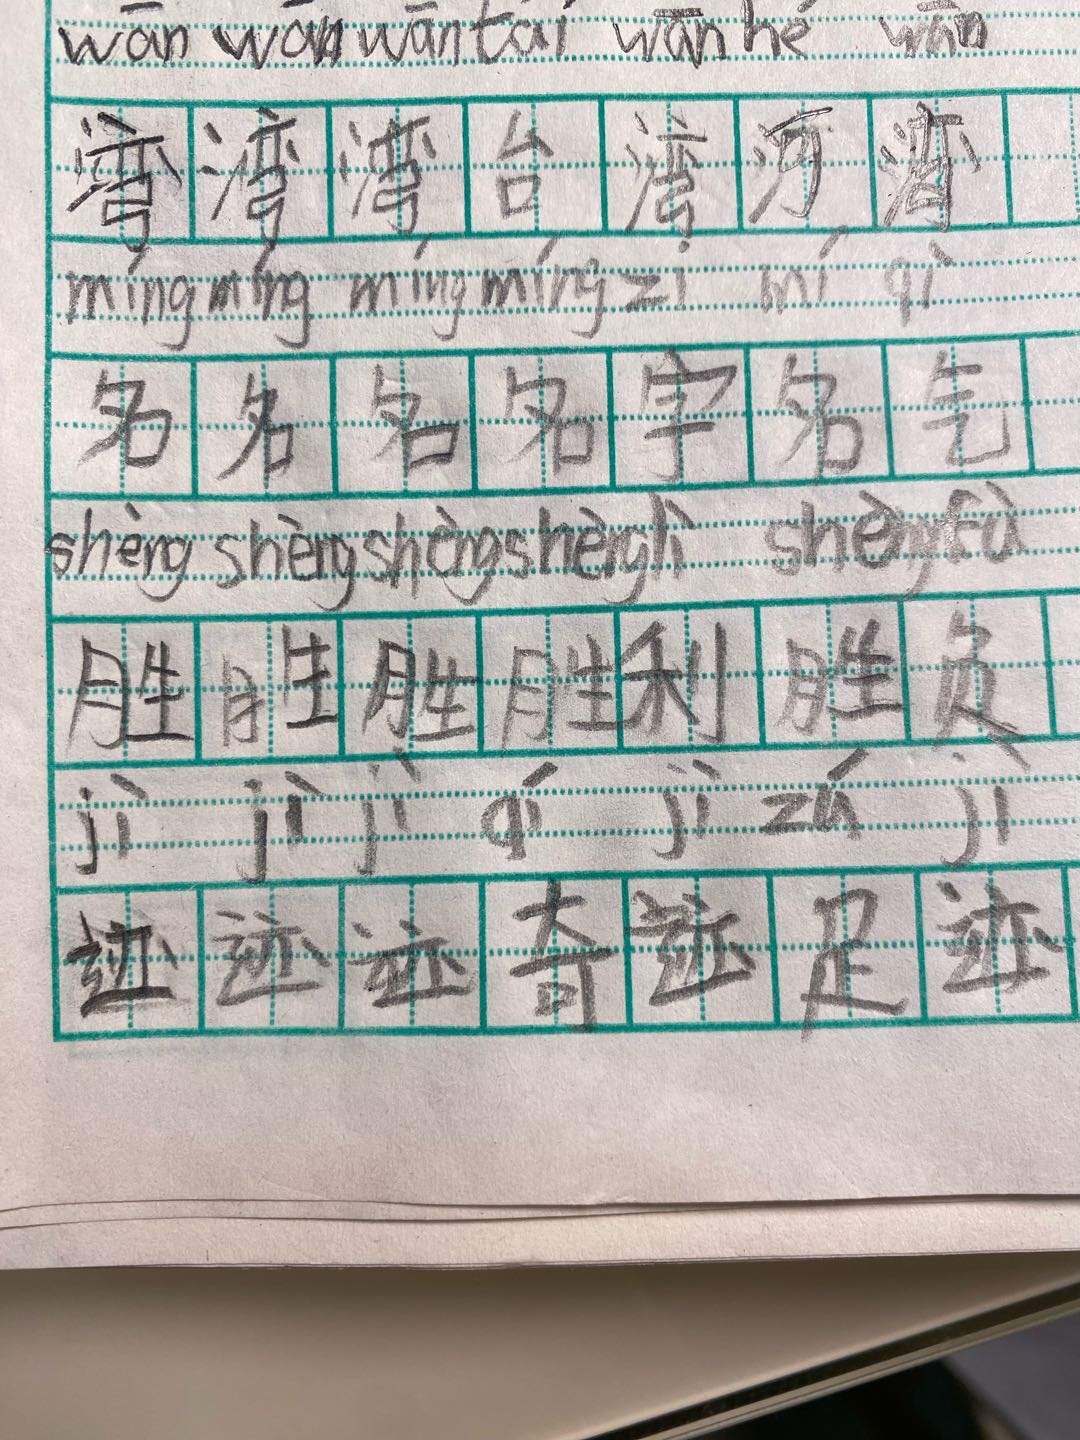 wān wān wān tái wān hé wān
湾 湾 湾 台 湾 河 湾
míng míng míng míng zì mí qì
名 名 名 名 字 名 气
shèng shèng shèng shèng lì shèng fù
胜 胜 胜 胜 利 胜 负
jì jì jì qí jì zú jì
迹 迹 迹 奇 迹 足 迹